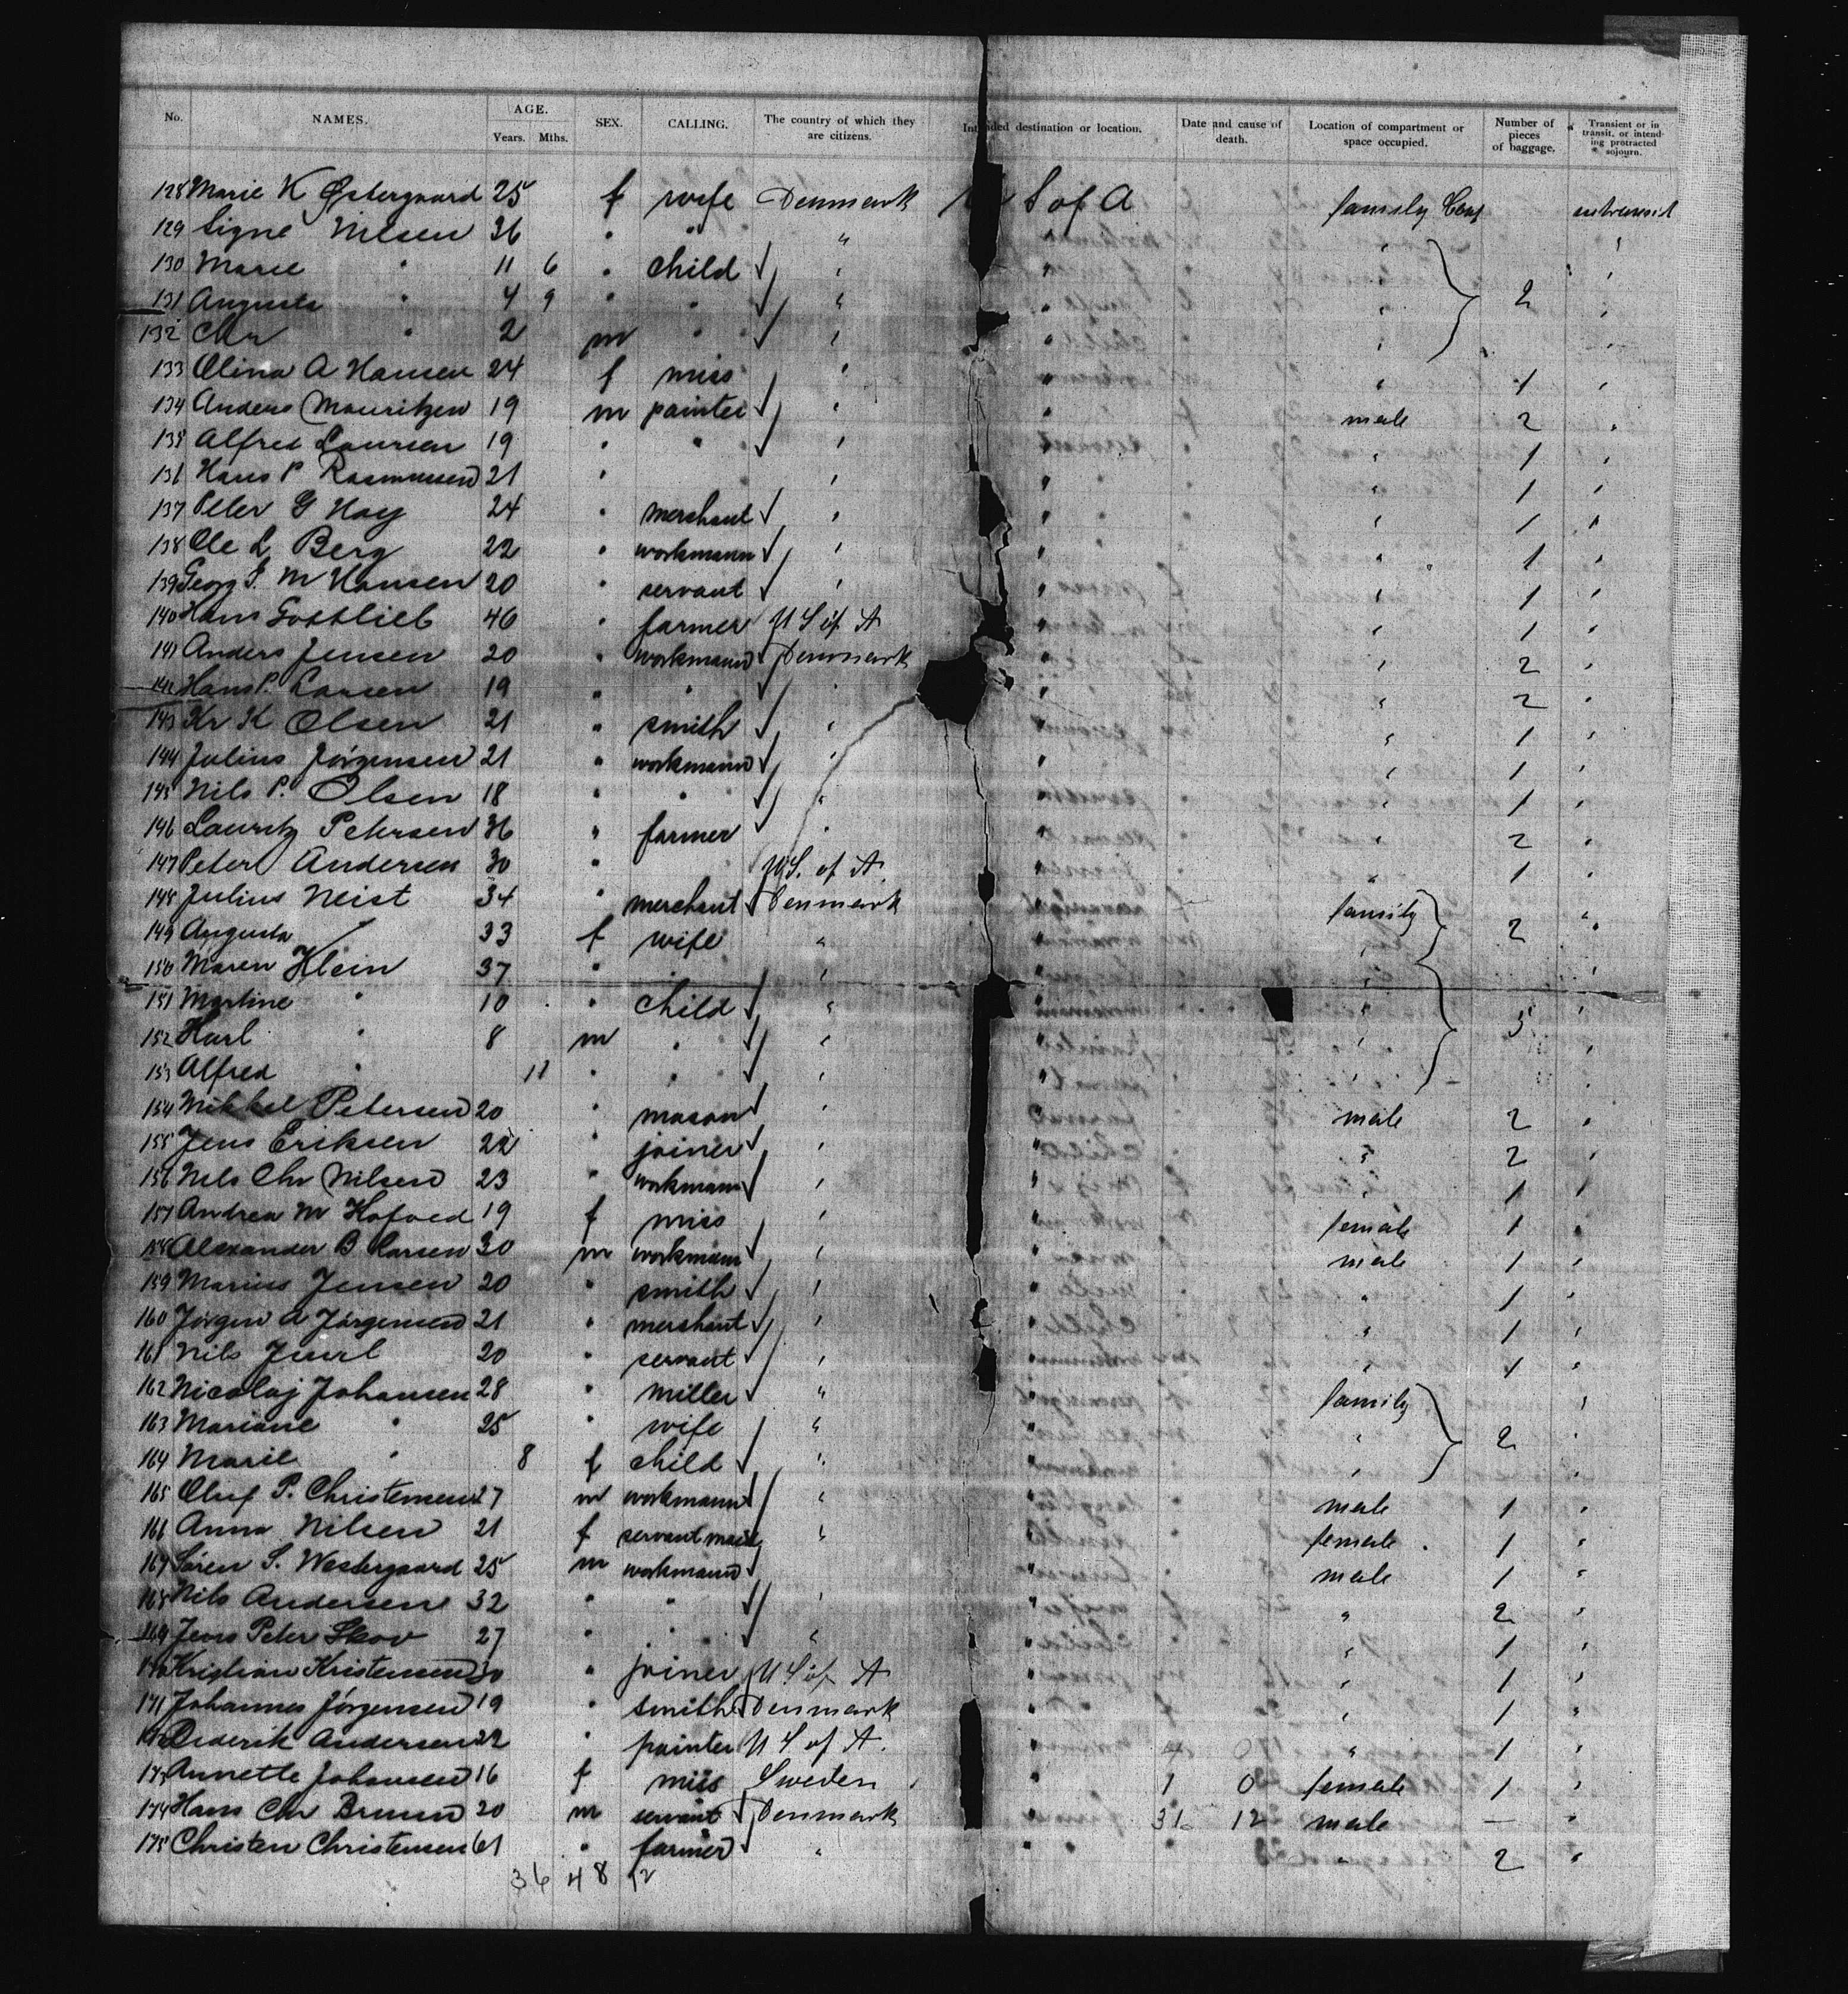 No. NAMES. AGE. Years. Mths. SEX. CALLING. The country of which they are citizens. Intended destination or location. Date and cause of death. Location of compartment or space occupied. Number of pieces of baggage. Transient or in transit, or intending protracted sojourn.
128 Marie K Østergaard 25 f wife Denmark U S of A family intransit
129 Signe Nilsen 36 " " " " "
130 Marie " 11 6 " child " " " "
131 Augusta " 4 9 " " " " " 2 "
132 Chr " 2 m " " " " "
133 Olina A Hansen 24 f miss " " " 1 "
134 Anders Mouritzen 19 m painter " " male 2 "
135 Alfred Laursen 19 " " " " " 1 "
136 Hans P Rasmussen 21 " " " " 1 "
137 Peter G Hoy 24 " merchant " " " 1 "
138 Ole L Berg 22 " workmann " " " 1 "
139 Georg J. M Hansen 20 " servant " " " 1 "
140 Hans Gottlieb 46 " farmer U S of A " " 1 "
141 Anders Jensen 20 " workmann Denmark " " 2 "
142 Hans P. Larsen 19 " " " " " 2 "
143 Kr K Olsen 21 " smith " " " 1 "
144 Julius Jörgensen 21 " workmann " " " 1 "
145 Nils P. Olsen 18 " " " " " 1 "
146 Lauritz Petersen 36 " farmer " " " 2 "
147 Peter Andersen 30 " U S. of A. " " 1 "
148 Julius Neist 34 " merchant Denmark " family "
149 Augusta " 33 f wife " " " 2 "
150 Maren Klein 37 " " " " " "
151 Martine " 10 " child " " " "
152 Karl " 8 m " " " " 3 "
153 Alfred " 11 " " " " " "
154 Mikkel Petersen 20 " mason " " male 2 "
155 Jens Eriksen 22 " joiner " " " 2 "
156 Nils Chr Nilsen 23 " workmann " " " 1 "
157 Andrea M Hofved 19 f miss " " female 1 "
158 Alexander B Larsen 30 m workmann " " male 1 "
159 Marius Jensen 20 " smith " " " 1 "
160 Jörgen A Jörgensen 21 " merchant " " " 1 "
161 Nils Juul 20 " servant " " " 1 "
162 Nicolaj Johansen 28 " miller " " family "
163 Mariane " 25 " wife " " " 2 "
164 Marie " 8 f child " " " "
165 Oluf P. Christensen 27 m workmann " " male 1 "
166 Anna Nilsen 21 f servant maid " " female 1 "
167 Sören S. Westergaard 25 m workmann " male 1 "
168 Nils Andersen 32 " " " " " 2 "
169 Jens Peter Skov 27 " " " " " 1 "
170 Kristian Kristensen 30 " joiner U S of A " " 1 "
171 Johannes Jörgensen 19 " smith Denmark " " 1 "
172 Diderik Andersen 22 " painter U S of A. " 4 0 " 1 "
173 Annette Johansen 16 f miss Sweden " 1 0 female 1 "
174 Hans Chr Bruun 20 m servant Denmark " 31 12 male — "
175 Christen Christensen 61 " farmer " " " 2 "
36 48 12